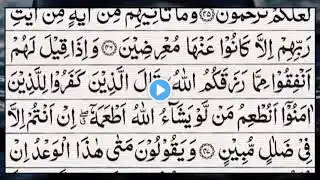 لَعَلَّكُمْ تُرْحَمُوْنَ ﴿۴۵﴾ وَمَا تَاْتِيْهِمْ مِّنْ اٰيَةٍ مِّنْ اٰيٰتِ
رَبِّهِمْ اِلَّا كَانُوْا عَنْهَا مُعْرِضِيْنَ ﴿۴۶﴾ وَاِذَا قِيْلَ لَهُمْ
اَنْفِقُوْا مِمَّا رَزَقَكُمُ اللّٰهُ ۙ قَالَ الَّذِيْنَ كَفَرُوْا لِلَّذِيْنَ
اٰمَنُوْۤا اَنُطْعِمُ مَنْ لَّوْ يَشَآءُ اللّٰهُ اَطْعَمَهٗۤ ۖ اِنْ اَنْتُمْ اِلَّا
فِيْ ضَلٰلٍ مُّبِيْنٍ ﴿۴۷﴾ وَيَقُوْلُوْنَ مَتٰى هٰذَا الْوَعْدُ اِنْ